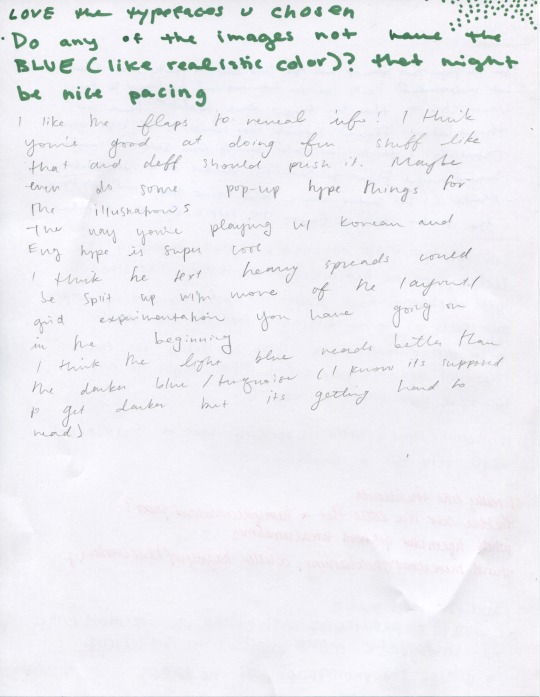 LOVE the typefaces u chosen
· Do any of the images not have the
BLUE (like realistic color)? that might
be nice pacing
I like the flaps to reveal info! I think
you're good at doing fun stuff like
that and deff should push it. Maybe
even do some pop-up type things for
the illustrations
The way you're playing w/ Korean and
Eng type is super cool
I think the text heavy spreads could
be split up with more of the layout/
grid experimentation you have going on
in the beginning
I think the light blue reads better than
the darker blue/turquoise (I know its supposed
to get darker but its getting hard to
read)